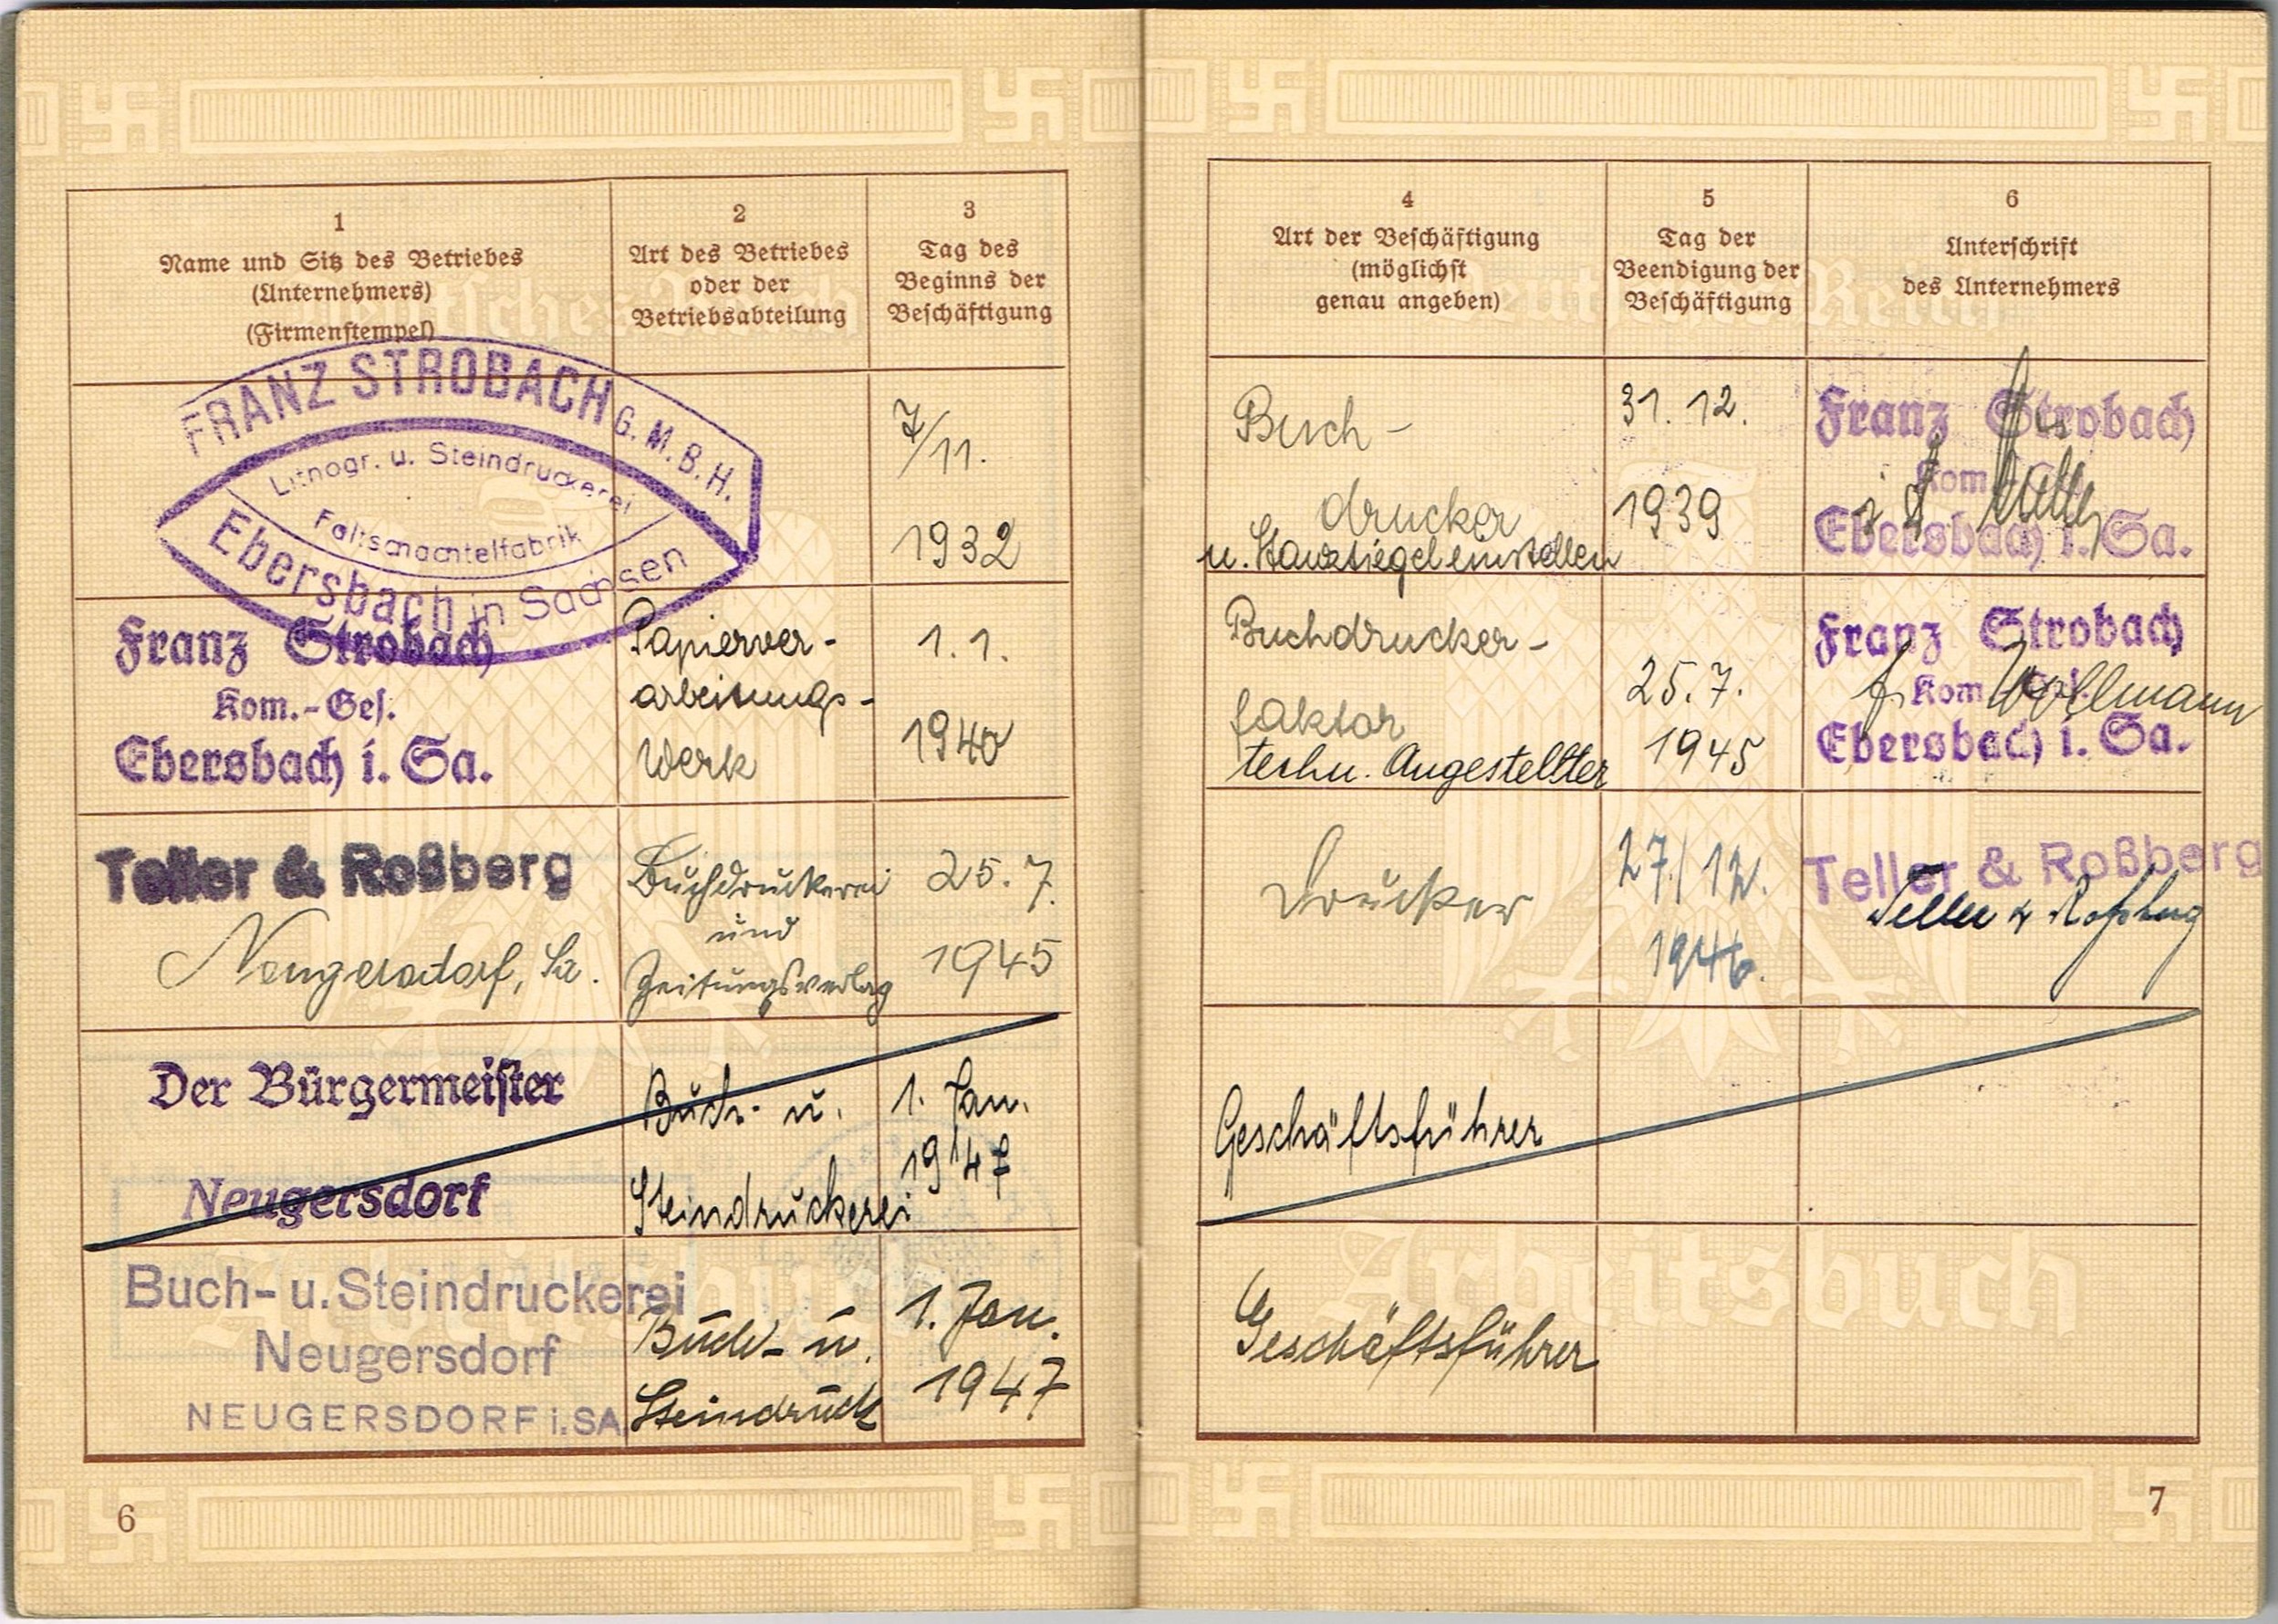 1
Name und Sitz des Betriebes
(Unternehmers)
(Firmenstempel)
2
Art des Betriebes
oder der
Betriebsabteilung
3
Tag des
Beginns der
Beschäftigung
FRANZ STROBACH G.M.B.H.
Lithogr. u. Steindruckerei
Faltschachtelfabrik
Ebersbach in Sachsen
7/11.
1932
Franz Strobach
Kom.-Ges.
Ebersbach i. Sa.
Papierver-
arbeitungs-
Werk
1.1.
1940
Teller & Roßberg
Neugersdorf, Sa.
Buchdruckerei
und
Zeitungsverlag
25.7.
1945
Der Bürgermeister
Neugersdorf
Buch- u.
Steindruckerei
1. Jan.
1947
Buch- u. Steindruckerei
Neugersdorf
NEUGERSDORF i. SA.
Buch- u.
Steindruck
1. Jan.
1947
6
4
Art der Beschäftigung
(möglichst
genau angeben)
5
Tag der
Beendigung der
Beschäftigung
6
Unterschrift
des Unternehmers
Buch-
drucker
u. Stanztiegeleinstellen
31.12.
1939
Franz Strobach
Kom.
Ebersbach i. Sa.
Buchdrucker-
faktor
techn. Angestellter
25.7.
1945
Franz Strobach
Kom.
Wollmann
Ebersbach i. Sa.
Drucker
27/12.
1946.
Teller & Roßberg
Teller & Roßberg
Geschäftsführer
Geschäftsführer
7
Deutsches Reich
Arbeitsbuch